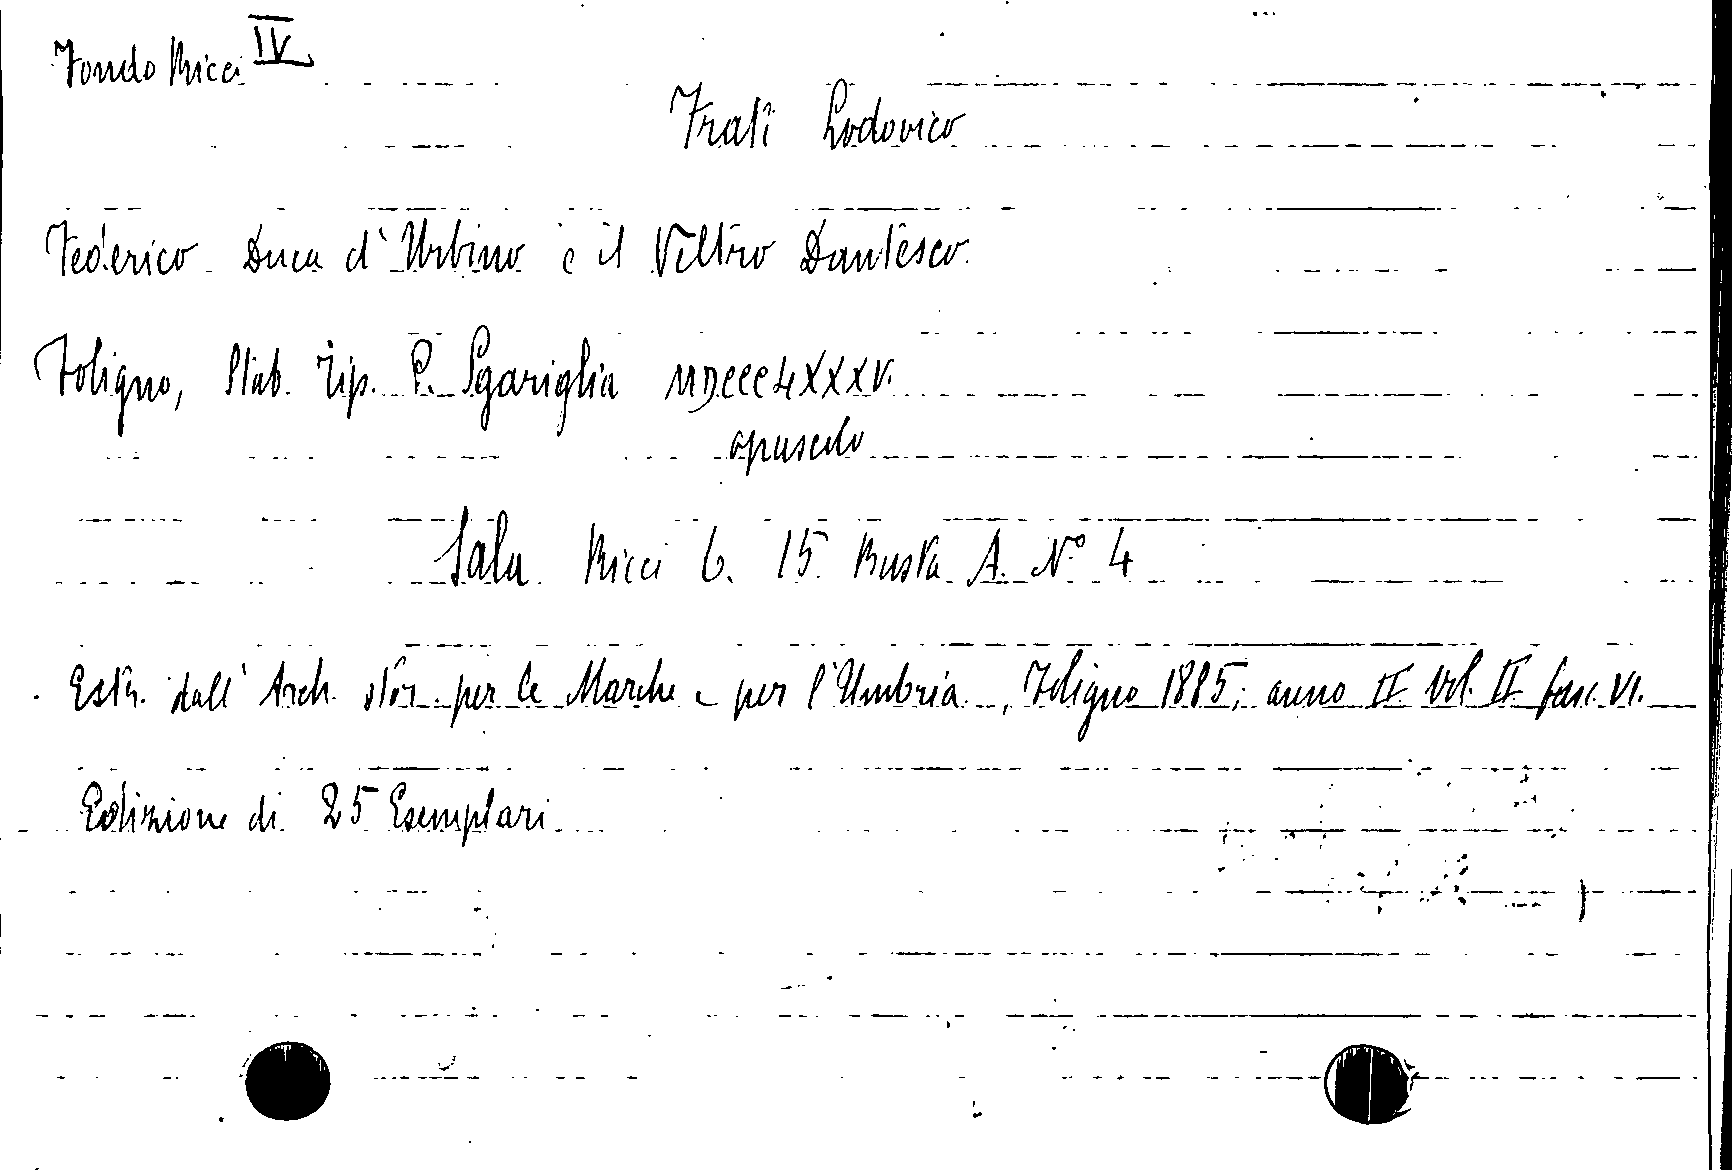 Fondo Ricci IV
Frati Lodovico
Federico Duca d'Urbino e il Veltro Dantesco.
Foligno, Stab. Tip. P. Sgariglia MDCCCLXXXV.
opuscolo
Sala Ricci 6. 15 Busta A. Nº 4
Estr. dall' Arch. stor. per le Marche e per l'Umbria, Foligno 1885; anno II Vol. II fasc. VI.
Edizione di 25 Esemplari